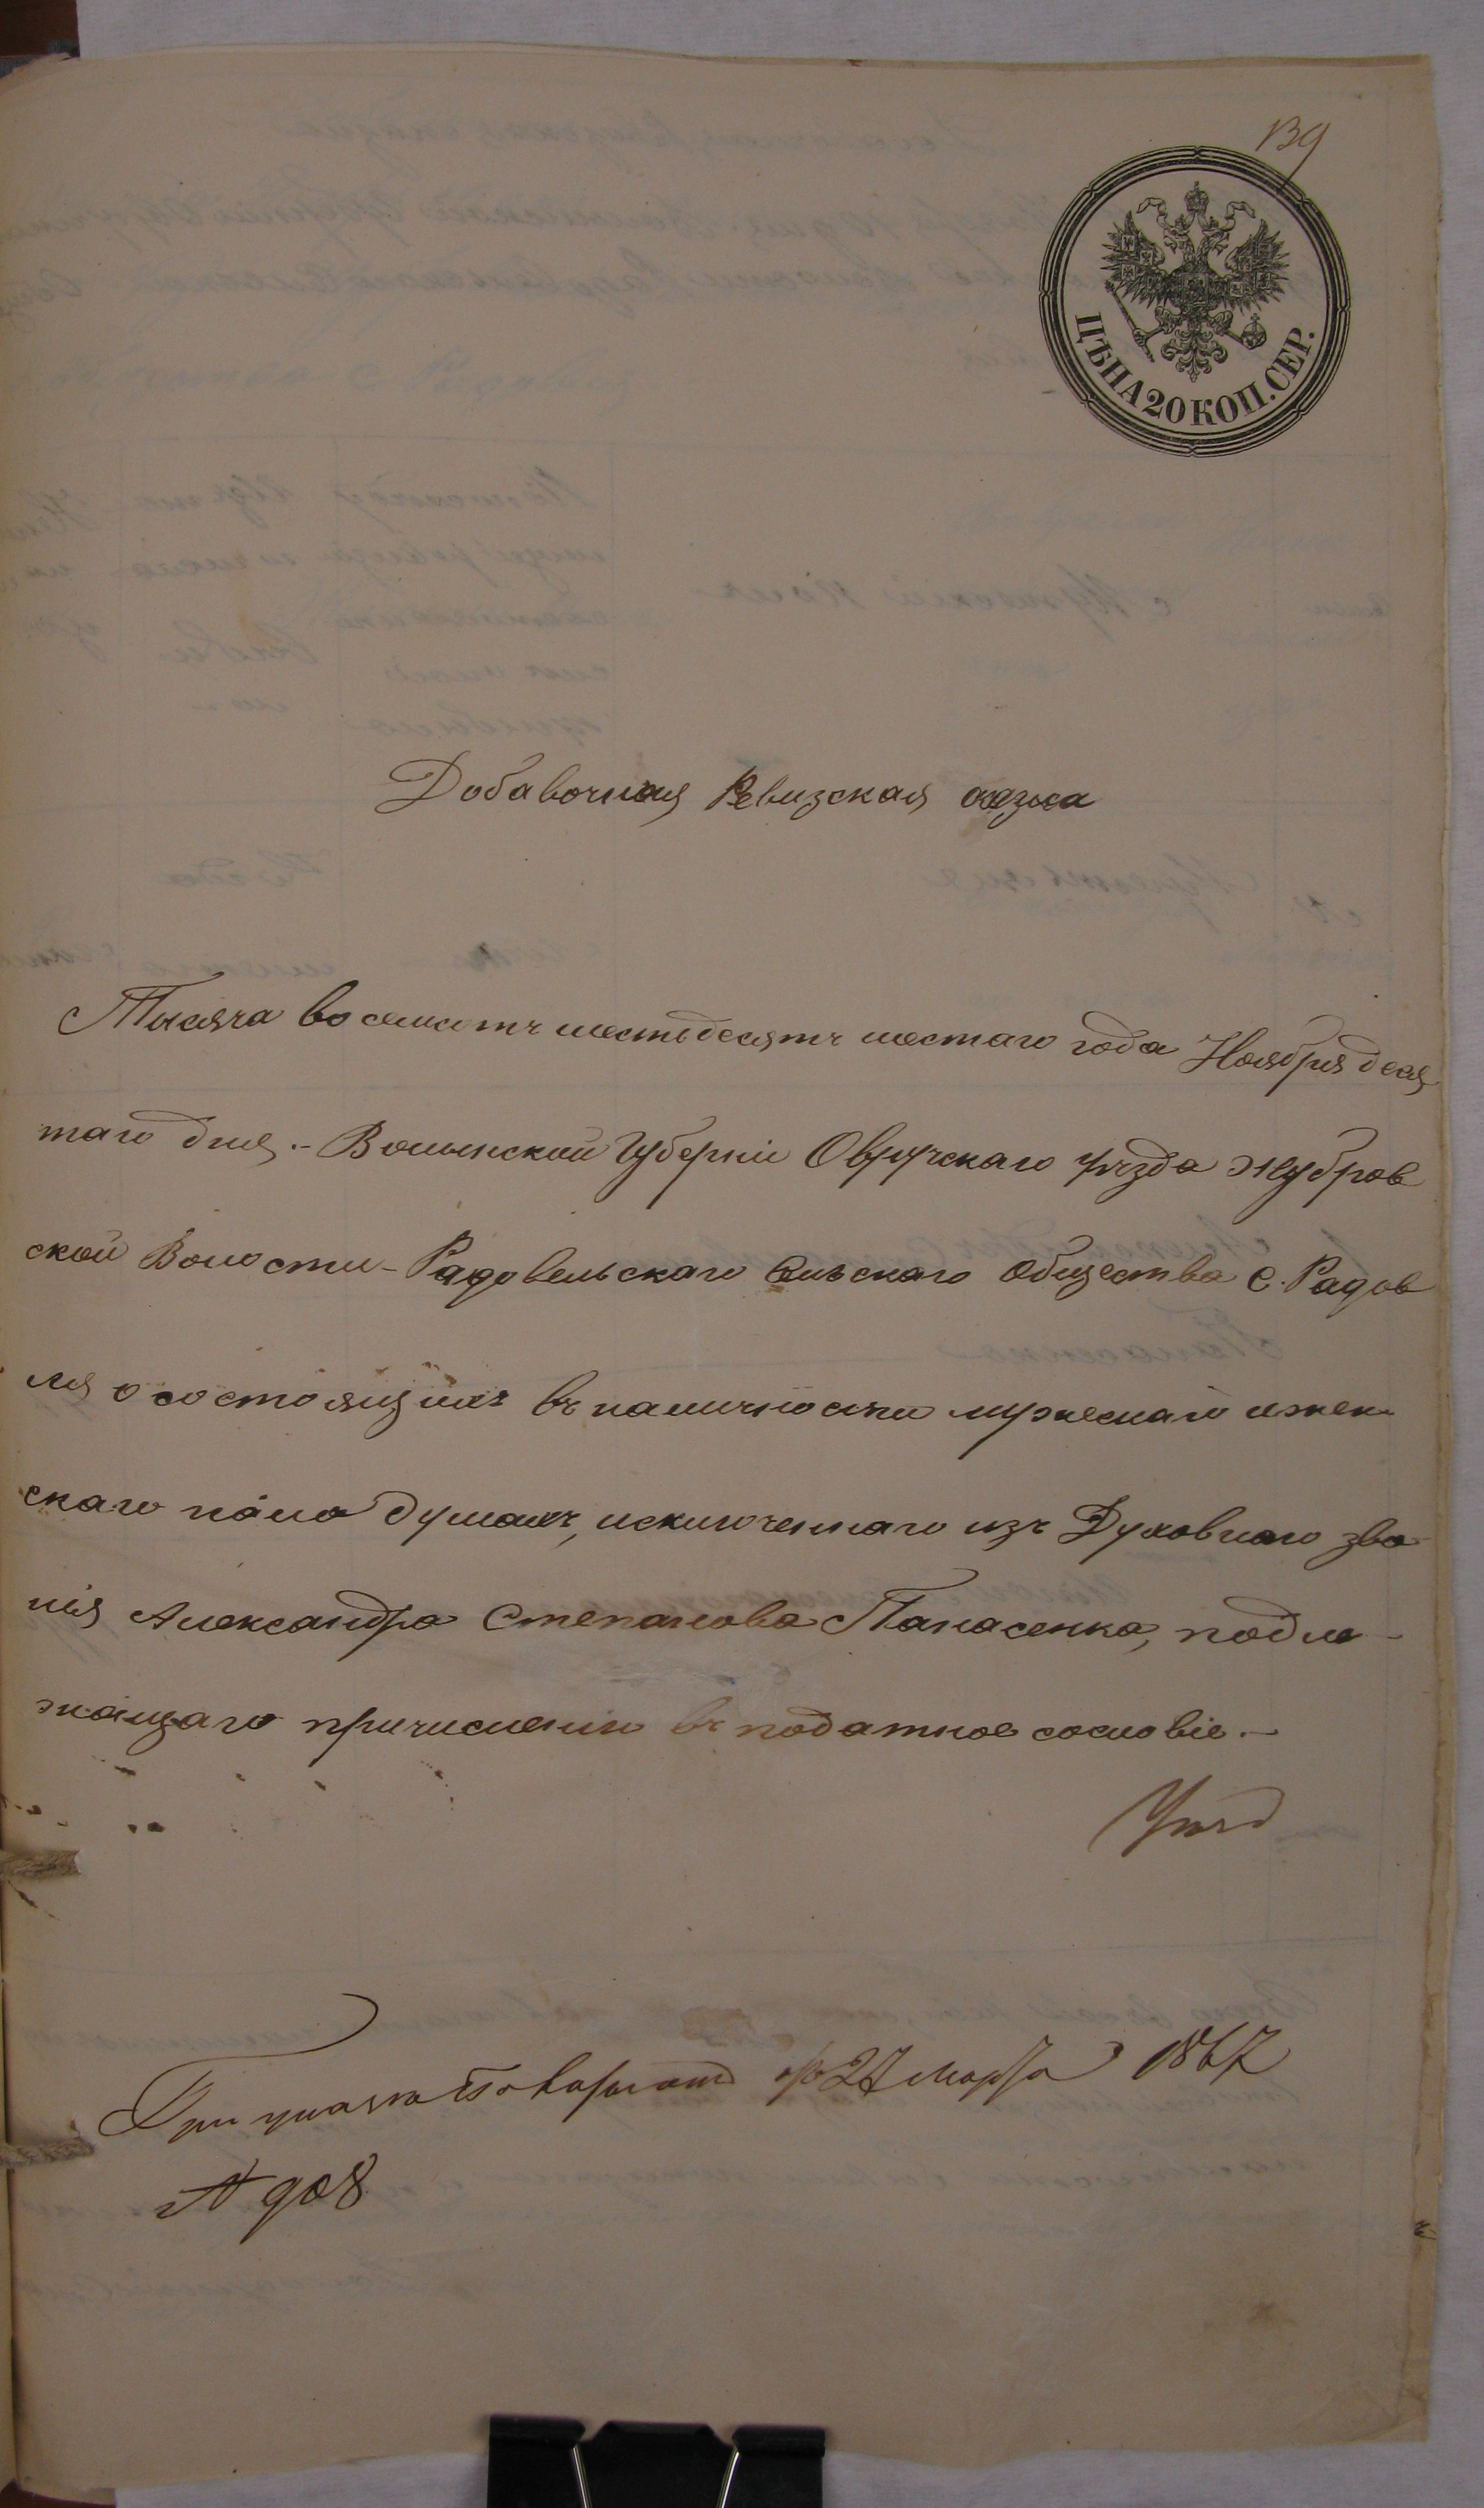 139
ЦѢНА 20 КОП. СЕР.
Добавочная Ревизская сказка
Тысяча восемсотъ шестьдесятъ шестаго года Ноября деся
таго дня.- Волынской Губерніи Овручскаго уѣзда Жубров
ской Волости - Радовельскаго Сельскаго Общества С. Радов
ля о состоящихъ въ наличности мужескаго и жен
скаго пола душахъ, исключеннаго изъ Духовнаго зва
нія Александра Степанова Панасенка, подле-
жащаго причисленію въ податное сословіе.-
При указѣ 27 Марта 1867
№ 908